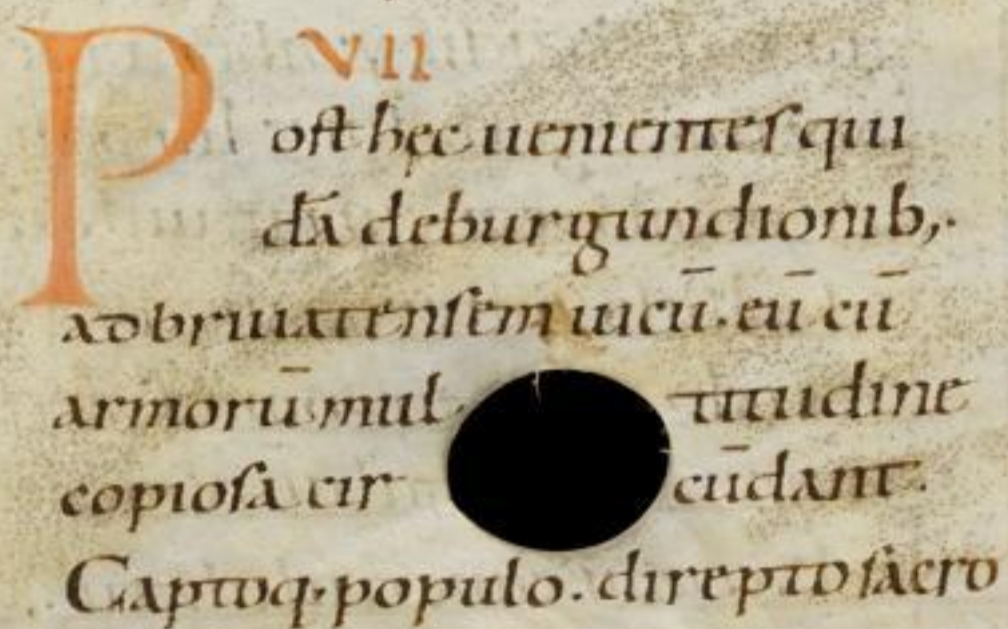 VII
Post hęc uenientes qui
dā deburgundionib;.
ad briuatensem uicū. eū cū
armorū mul titudine
copiosa cir cūdant.
Captoq; populo. direpto sacro